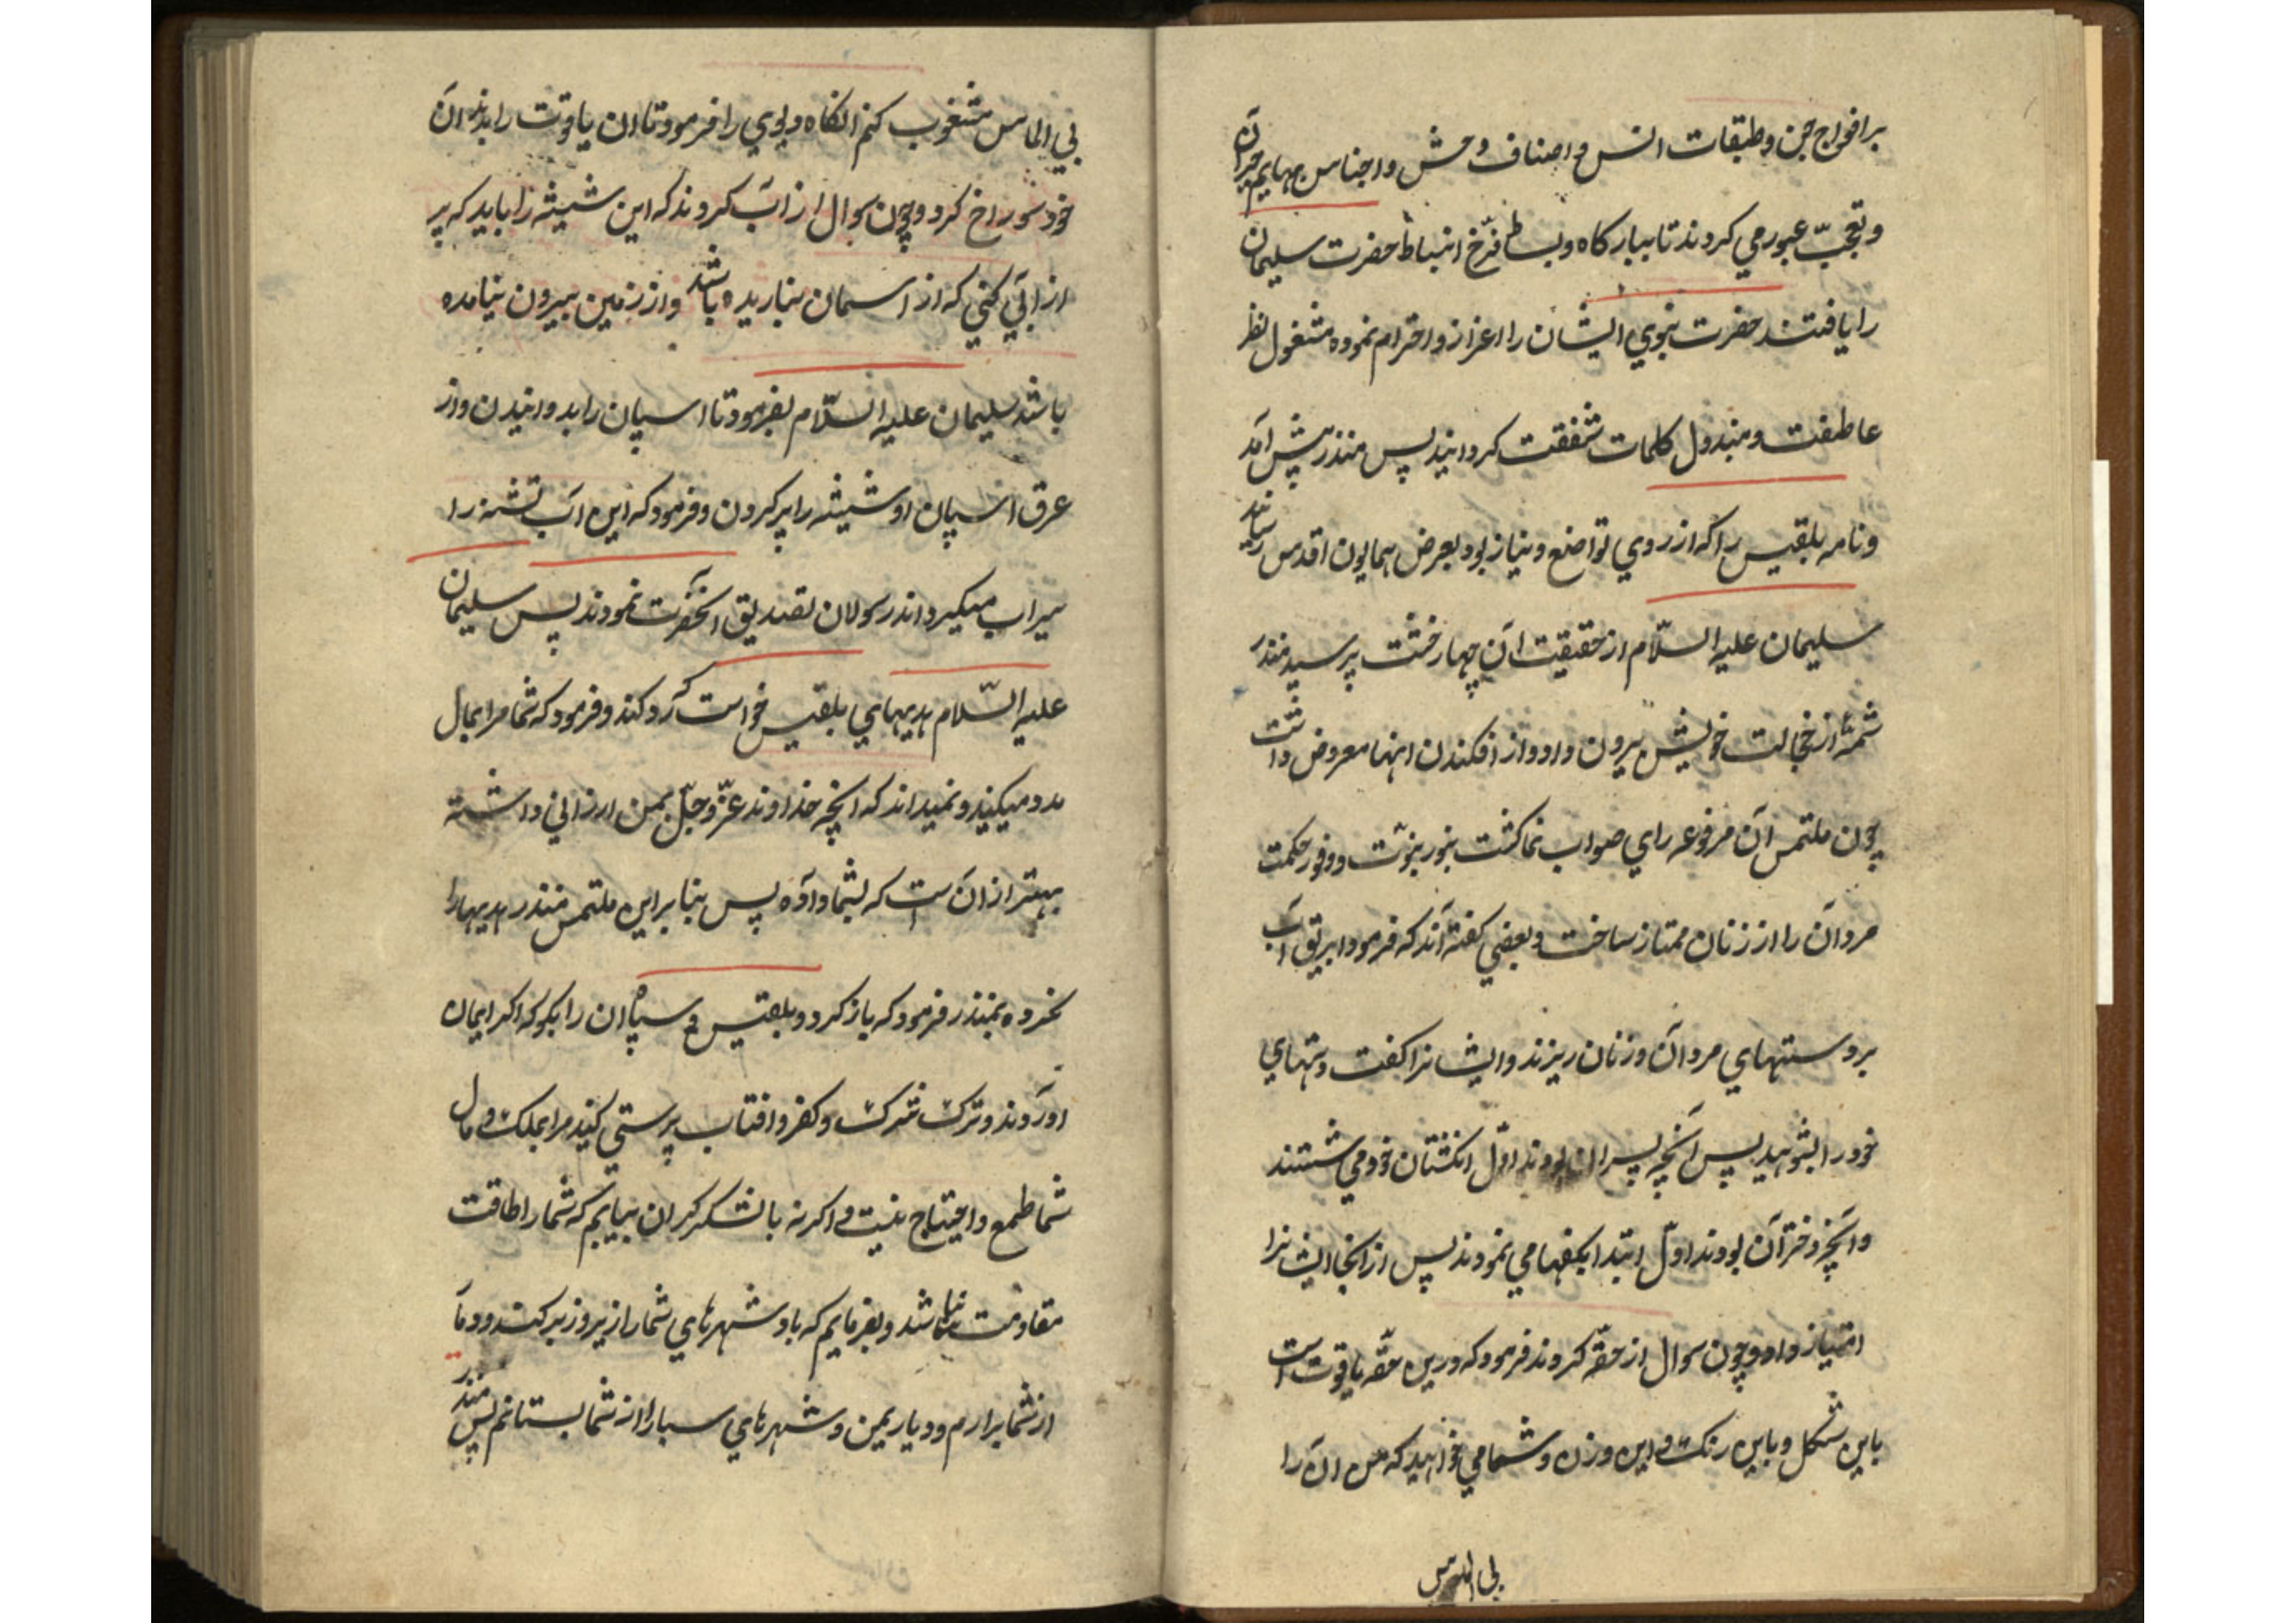 برافواج جن و طبقات انس و اصناف وحش و اجناس بهایم حیران
و تعجب عبور می کردند تا ببارکاه و بساط فرخ انبساط حضرت سلیمان
را یافتند حضرت نبوی ایشان را اعزاز و احترام نموده مشغول نظر
عاطفت و مبذول کلمات شفقت کردانید پس منذر پیش آمد
و نامه بلقیس را که از روی تواضع و نیاز بود بعرض همایون اقدس رسانید
سلیمان علیه السلام از حقیقت آن چهار خشت پرسید منذر
شمهٔ از خجالت خویش بیرون داد و از افکندن اینها معروض داشت
چون ملتمس آن مرفوعه رای صواب نما کشت بنور نبوت و وفور حکمت
مردان را از زنان ممتاز ساخت و بعضی کفته اند که فرمود ابریق آب
بر دستهای مردان و زنان ریزند و ایشانرا کفت دستهای
خود را بشوئید پس آنچه پسران بودند اول انکشتان خود می شستند
و آنچه دختران بودند اول ابتدا بکفها می نمودند پس از آنجا ایشانرا
امتیاز داد و چون سوال از حقه کردند فرمود که درین حقه یاقوت است
باین شکل و باین رنک و این وزن و شما می خواهید که من آن را
بی الماس
بی الماس مثغوب کنم آنکاه دیوی را فرمود تا آن یاقوت را بدندان
خود سوراخ کرد و چون سوال از آب کردند که این شیشه را باید که پر
از آبی کنی که از آسمان نباریده باشد و از زمین بیرون نیامده
باشد سلیمان علیه السلام بفرمود تا اسپان را بدوانیدن و از
عرق اسپان او شیشه را پر کردن و فرمود که این آب تشنه را
سیراب میکرداند رسولان تصدیق آنحضرت نمودند پس سلیمان
علیه السلام هدیهای بلقیس خواست که رد کند و فرمود که شما مرا بمال
مدد میکنید و نمیداند که آنچه خداوند عز و جل بمن ارزانی داشته
بهتر از آن است که بشما داده پس بنابر این ملتمس منذر هدیها را
نخرده بمنذر فرمود که باز کرد و بلقیس و سپاه آن را بکو که اکر ایمان
آورند و ترک شرک و کفر و افتاب پرستی کنید مرا بملک و مال
شما طمع و احتیاج نیست و اکر نه با لشکر کران بیایم که شما را طاقت
مقاومت نباشد و بفرمایم که باد شهرهای شما را زیر و زبر کند و دمار
از شما برارم و دیار یمن و شهرهای سبا را از شما بستانم پس منذر